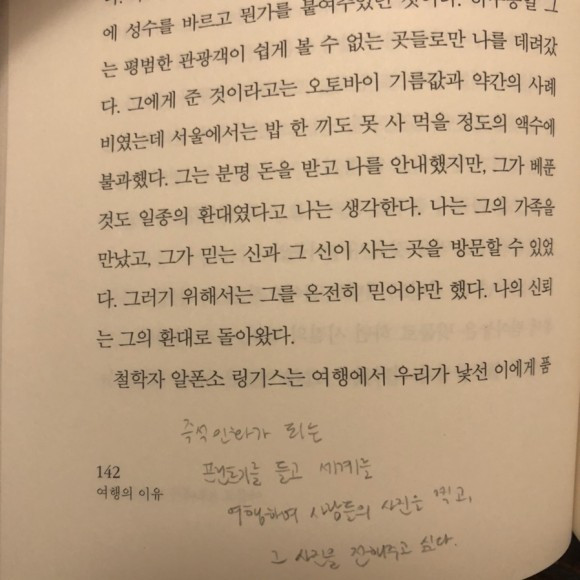 에 성수를 바르고 뭔가를 붙여주었던 것이다. 하루종일 그
는 평범한 관광객이 쉽게 볼 수 없는 곳들로만 나를 데려갔
다. 그에게 준 것이라고는 오토바이 기름값과 약간의 사례
비였는데 서울에서는 밥 한 끼도 못 사 먹을 정도의 액수에
불과했다. 그는 분명 돈을 받고 나를 안내했지만, 그가 베푼
것도 일종의 환대였다고 나는 생각한다. 나는 그의 가족을
만났고, 그가 믿는 신과 그 신이 사는 곳을 방문할 수 있었
다. 그러기 위해서는 그를 온전히 믿어야만 했다. 나의 신뢰
는 그의 환대로 돌아왔다.
철학자 알폰소 링기스는 여행에서 우리가 낯선 이에게 품
즉석 인화가 되는
프린트기를 들고 세계를
여행하며 사람들의 사진을 찍고,
그 사진을 전해주고 싶다.
142
여행의 이유